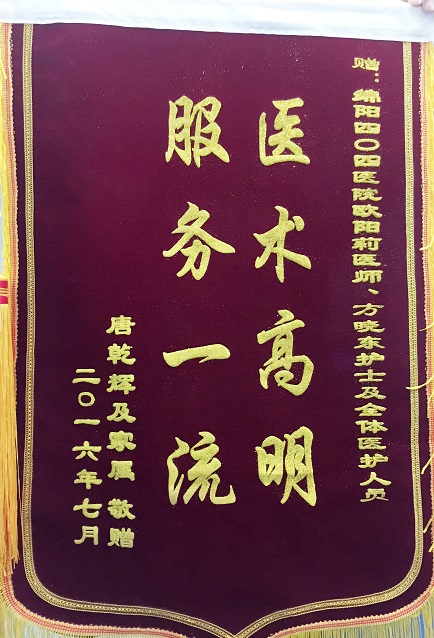 赠：绵阳四〇四医院欧阳莉医师、方晓东护士及全体医护人员
医术高明
服务一流
唐乾辉及家属 敬赠
二〇一六年七月